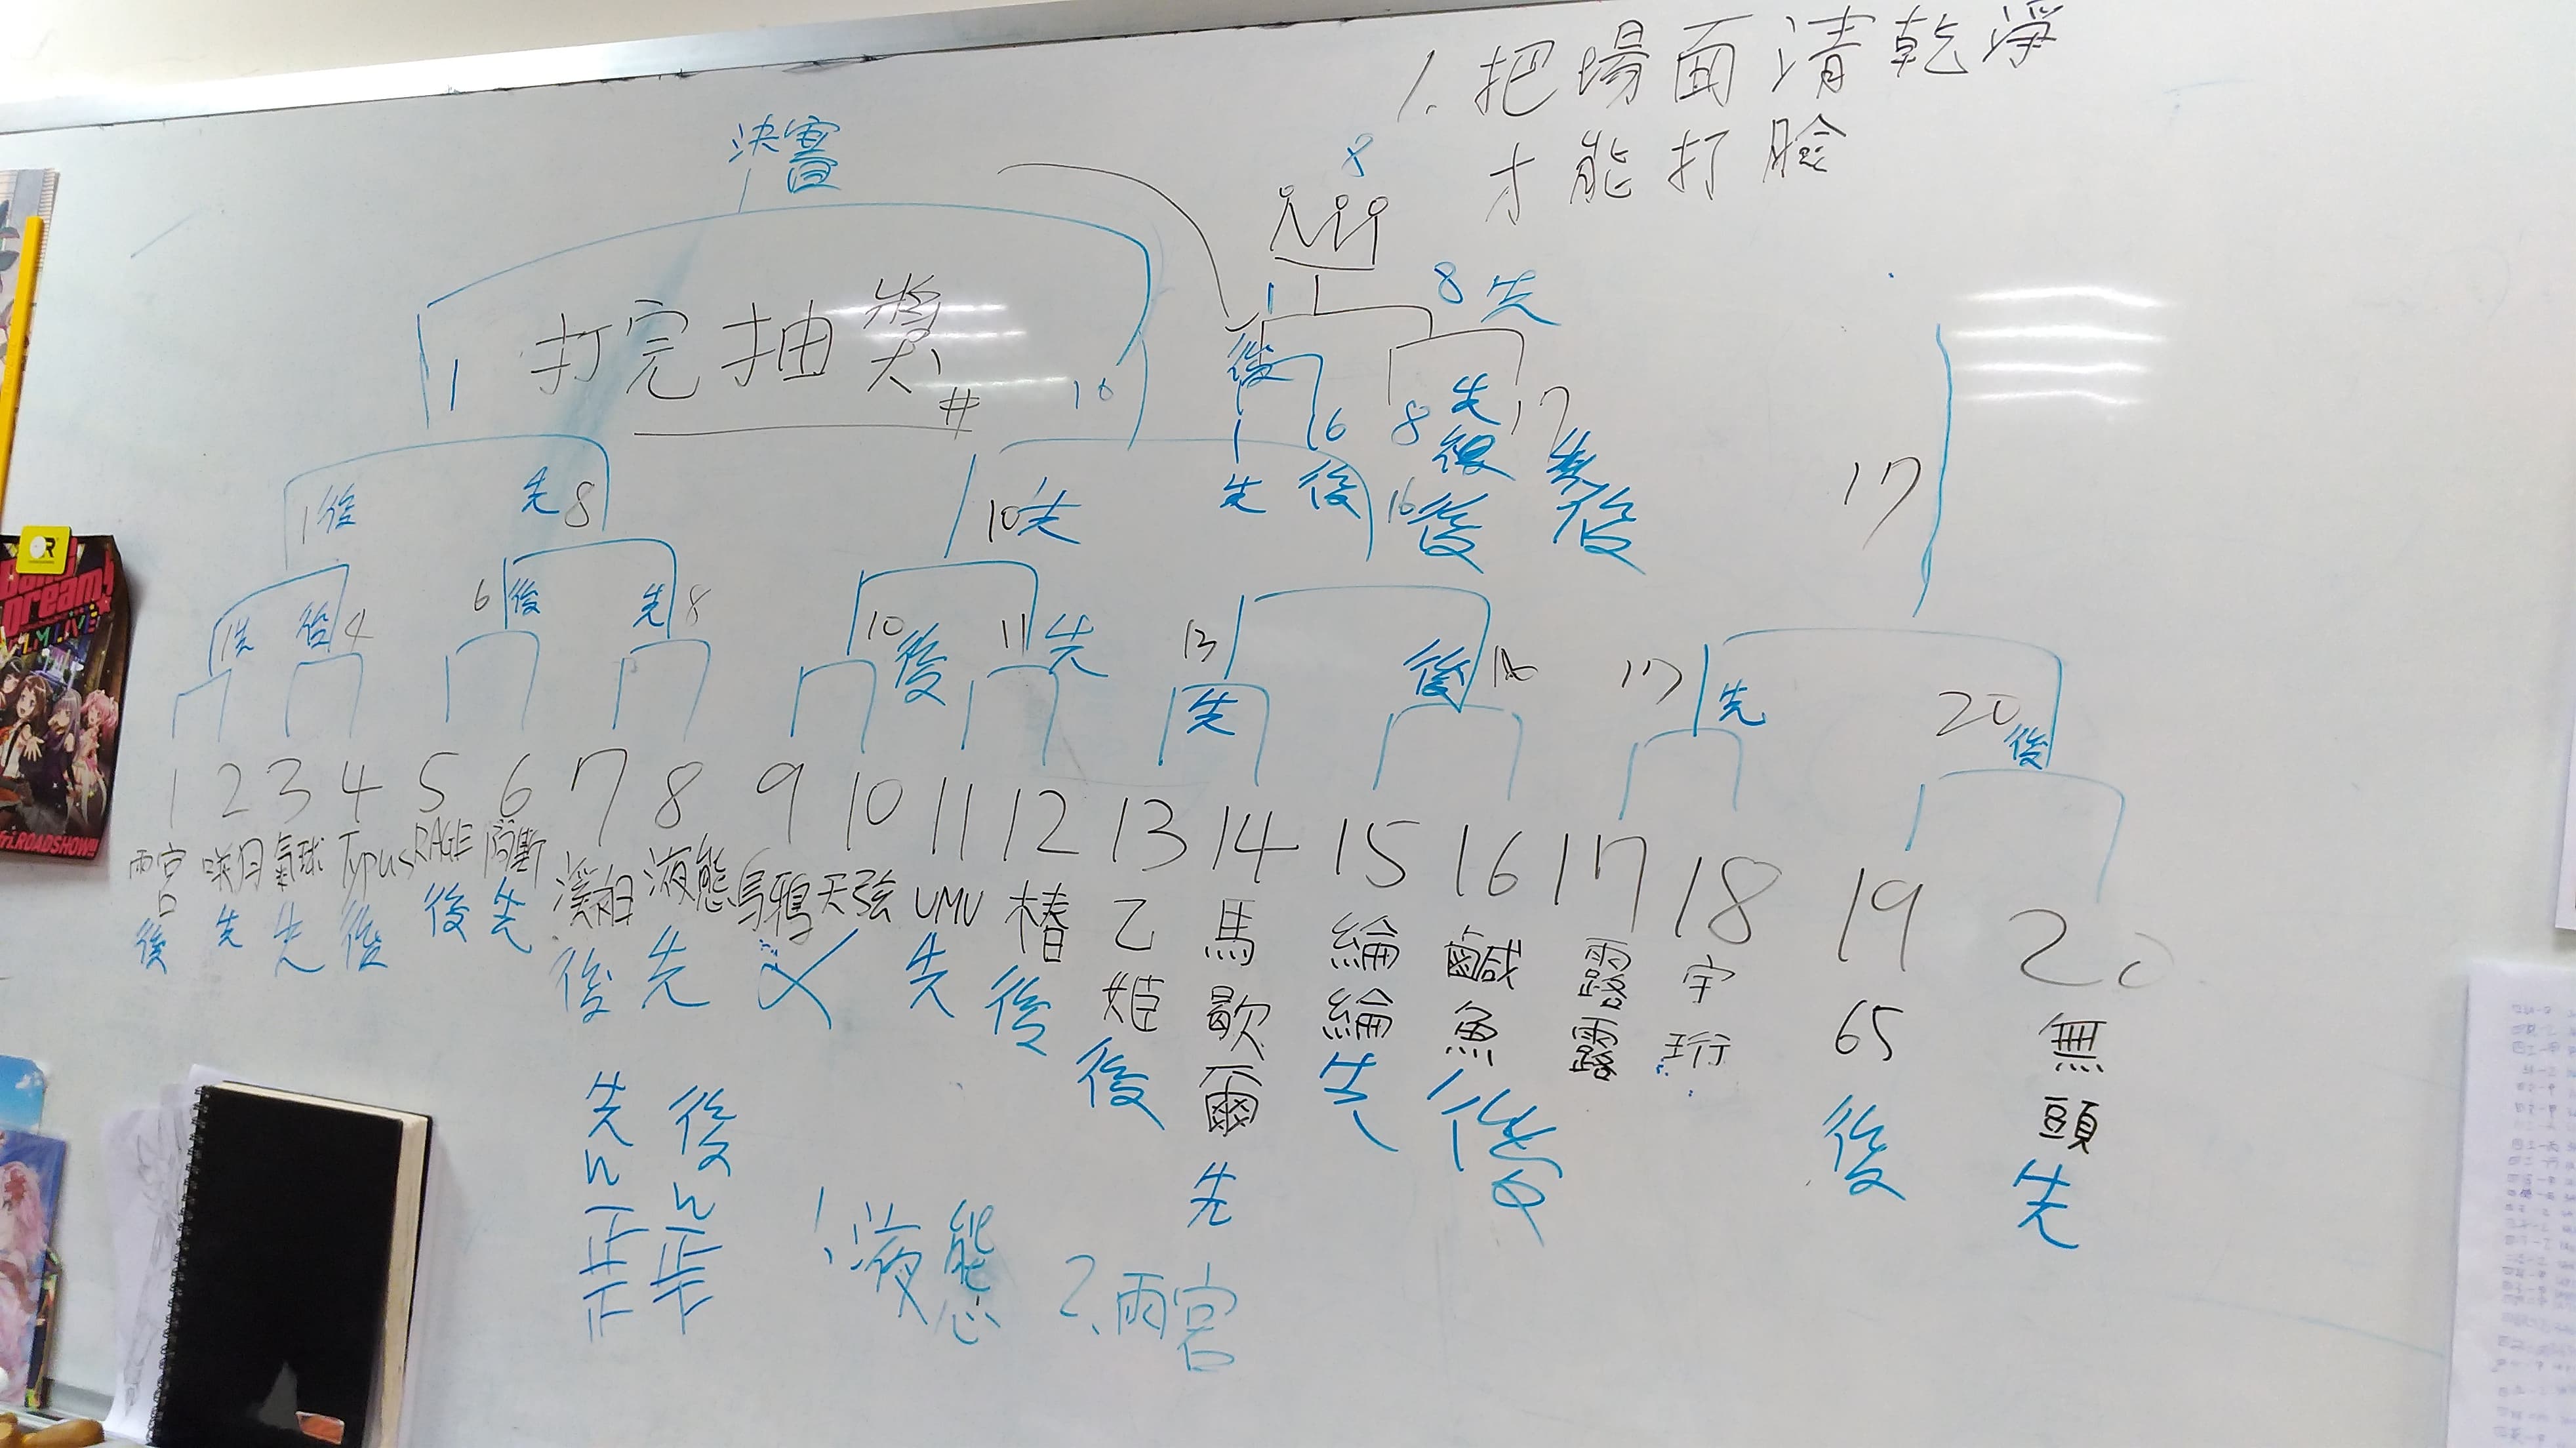 1. 把場面清乾淨
才能打臉
決賽
8
1
8先
打完抽獎#
1
10
後
先
17
1
16
8
後
先
後
16後
後
17
1後
先8
10先
1先
後4
6後
先8
10後
11先
13先
後16
17先
20後
1 2 3 4 5 6 7 8 9 10 11 12 13 14 15 16 17 18 19 20
雨宮
後
咲月
先
氣球
先
Typus
後
RAGE
後
阿斯
先
溪湘
後
液態
先
烏鴉
天弦
UMU
先
椿
後
乙姫
後
馬歇爾
先
綸綸
先
鹹魚
後
露露
宇珩
65
後
無頭
先
先 後
正 正
1.液態 2.雨宮
BanG Dream!
FILM LIVE
ROADSHOW!!